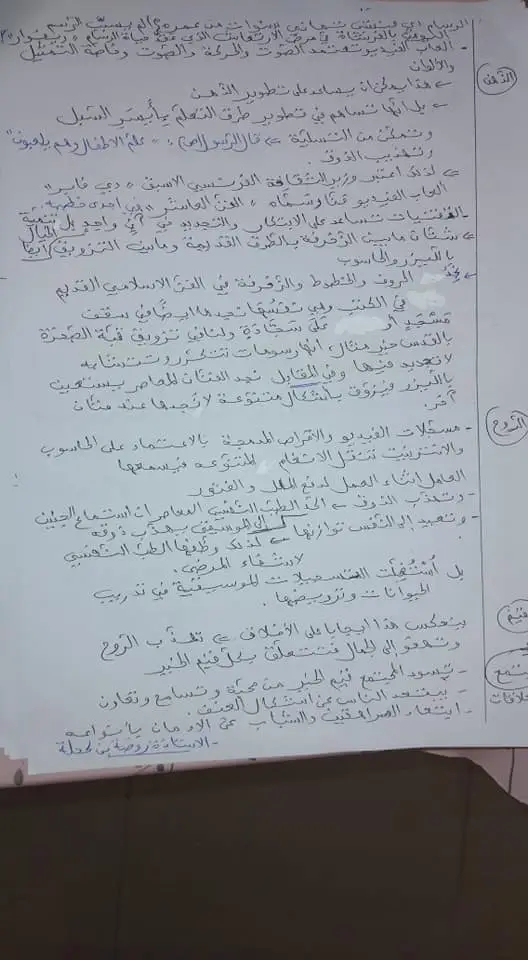 - ألعاب الفيديو تعتمد الصوت والحركة والصوت وخاصة التمثيل
والألوان
الذهن
← هذا يمكن أن يساعد على تطوير الذهن
← بل إنها تساهم في تطوير طرق التعلم بأيسر السبل
وتمكن من التسلية ← قال الرسول (صلعم): "علم الأطفال وهم يلعبون"
وتهذيب الذوق.
← لذلك اعتبر وزير الثقافة الفرنسي الأسبق "دي فابر"
ألعاب الفيديو فنا وسماه "الفن العاشر" في إحدى خطبه
- الفنيات تساعد على الابتكار والتجديد في آن واحد بل تنمية الخيال
← شتان ما بين الزخرفة بالطرق القديمة وما بين التزويق أيضا
بالليزر والحاسوب
← الحروف والخطوط والزخرفة في الفن الإسلامي القديم
في الكتب وهي نفسها نجدها أيضا في سقف
مسجد أو على سجادة ولنا في تزويق قبة الصخرة
بالقدس خير مثال، إنها رسومات تتكرر وتتشابه
لا تجديد فيها وفي المقابل نجد الفنان المعاصر يستعين
بالليزر فيزوق بأشكال متنوعة لا نجدها عند فنان
آخر.
الروح
- مسجلات الفيديو والأقراص المدمجة بالاعتماد على الحاسوب
والانترنيت تنقل الأنغام المتنوعة فيسمعها
العامل أثناء العمل لدفع الملل والفتور
- وتهذب الذوق ← أكد الطب النفسي المعاصر أن استماع الجنين
إلى الموسيقى يهذب ذوقه
- وتعيد إلى النفس توازنها ← لذلك وظفها الطب النفسي
لاستشفاء المرضى.
بل استغلت التسجيلات الموسيقية في تدريب
الحيوانات وترويضها.
قيم
ينعكس هذا إيجابا على الأخلاق ← تهذب الروح
وتهفو إلى الجمال فتتعلق بكل قيم الخير
- تسود المجتمع قيم الخير من محبة وتسامح وتعاون
- يبتعد الناس عن أشكال العنف.
- ابتعاد المراهقين والشباب عن الإدمان بأنواعه
- الأستاذة روضة بن